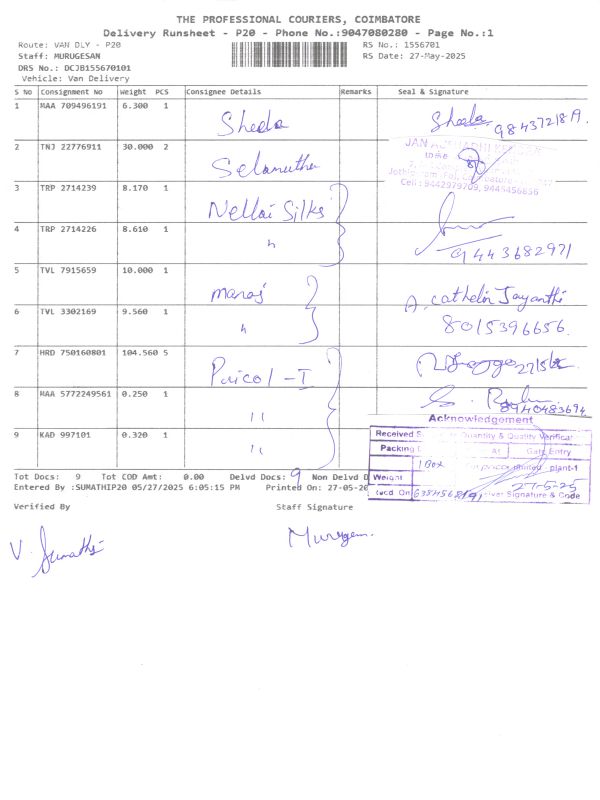 THE PROFESSIONAL COURIERS, COIMBATORE
Delivery Runsheet - P20 - Phone No.:9047080280 - Page No.:1
Route: VAN DLY - P20 RS No.: 1556701
Staff: MURUGESAN RS Date: 27-May-2025
DRS No.: DCJB155670101
Vehicle: Van Delivery
S No Consignment No Weight PCS Consignee Details Remarks Seal & Signature
1 MAA 709496191 6.300 1 Sheela Sheela
2 TNJ 22776911 30.000 2 Selamuthu
Cell : 9442979709, 9443456856
3 TRP 2714239 8.170 1 Nellai Silks
4 TRP 2714226 8.610 1 " 9443682971
5 TVL 7915659 10.000 1 manoj A. cathelin Jayanthi
6 TVL 3302169 9.560 1 " 8015396656
7 HRD 750160801 104.560 5 Pricol - I
8 MAA 5772249561 0.250 1 " 8940483694
Acknowledgement
9 KAD 997101 0.320 1 "
Received Quantity & Quality Verificat
Packing At Gate Entry
1 Box plant-1
Weight 27-5-25
Recd On Signature & Code
Tot Docs: 9 Tot COD Amt: 0.00 Delvd Docs: 9 Non Delvd D
Entered By :SUMATHIP20 05/27/2025 6:05:15 PM Printed On: 27-05-20
Verified By Staff Signature
V. Sumathi Murugesan